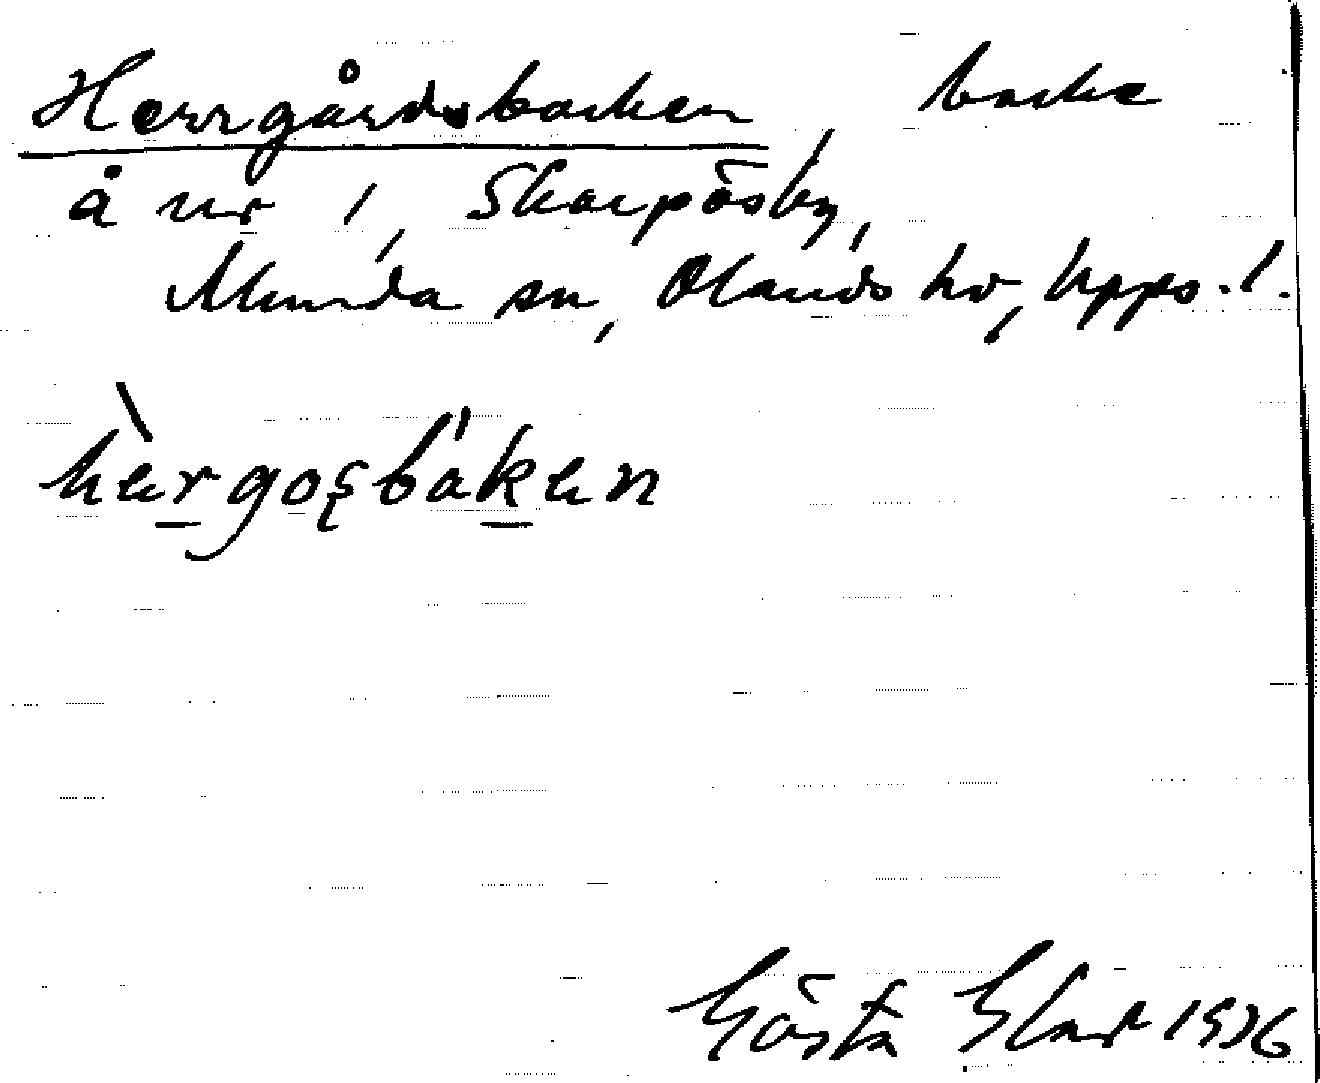 Herrgårdsbacken, backe
å nr 1, Skarpåsby,
Almunda sn, Olands hd, Upps. l.
hèrgosbáken
1936